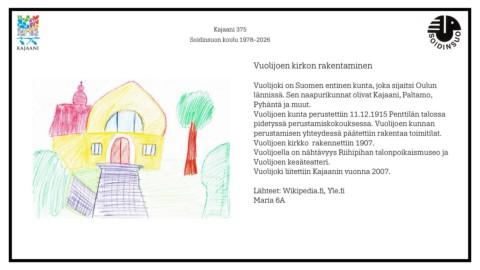 Kajaani 375
Soidinsuon koulu 1978-2026
KAJAANI
SOIDINSUO
Vuolijoen kirkon rakentaminen
Vuolijoki on Suomen entinen kunta, joka sijaitsi Oulun
läänissä. Sen naapurikunnat olivat Kajaani, Paltamo,
Pyhäntä ja muut.
Vuolijoen kunta perustettiin 11.12.1915 Penttilän talossa
pidetyssä perustamiskokouksessa. Vuolijoen kunnan
perustamisen yhteydessä päätettiin rakentaa toimitilat.
Vuolijoen kirkko rakennettiin 1907.
Vuolijoella on nähtävyys Riihipihan talonpoikaismuseo ja
Vuolijoen kesäteatteri.
Vuolijoki liitettiin Kajaanin vuonna 2007.
Lähteet: Wikipedia.fi, Yle.fi
Maria 6A